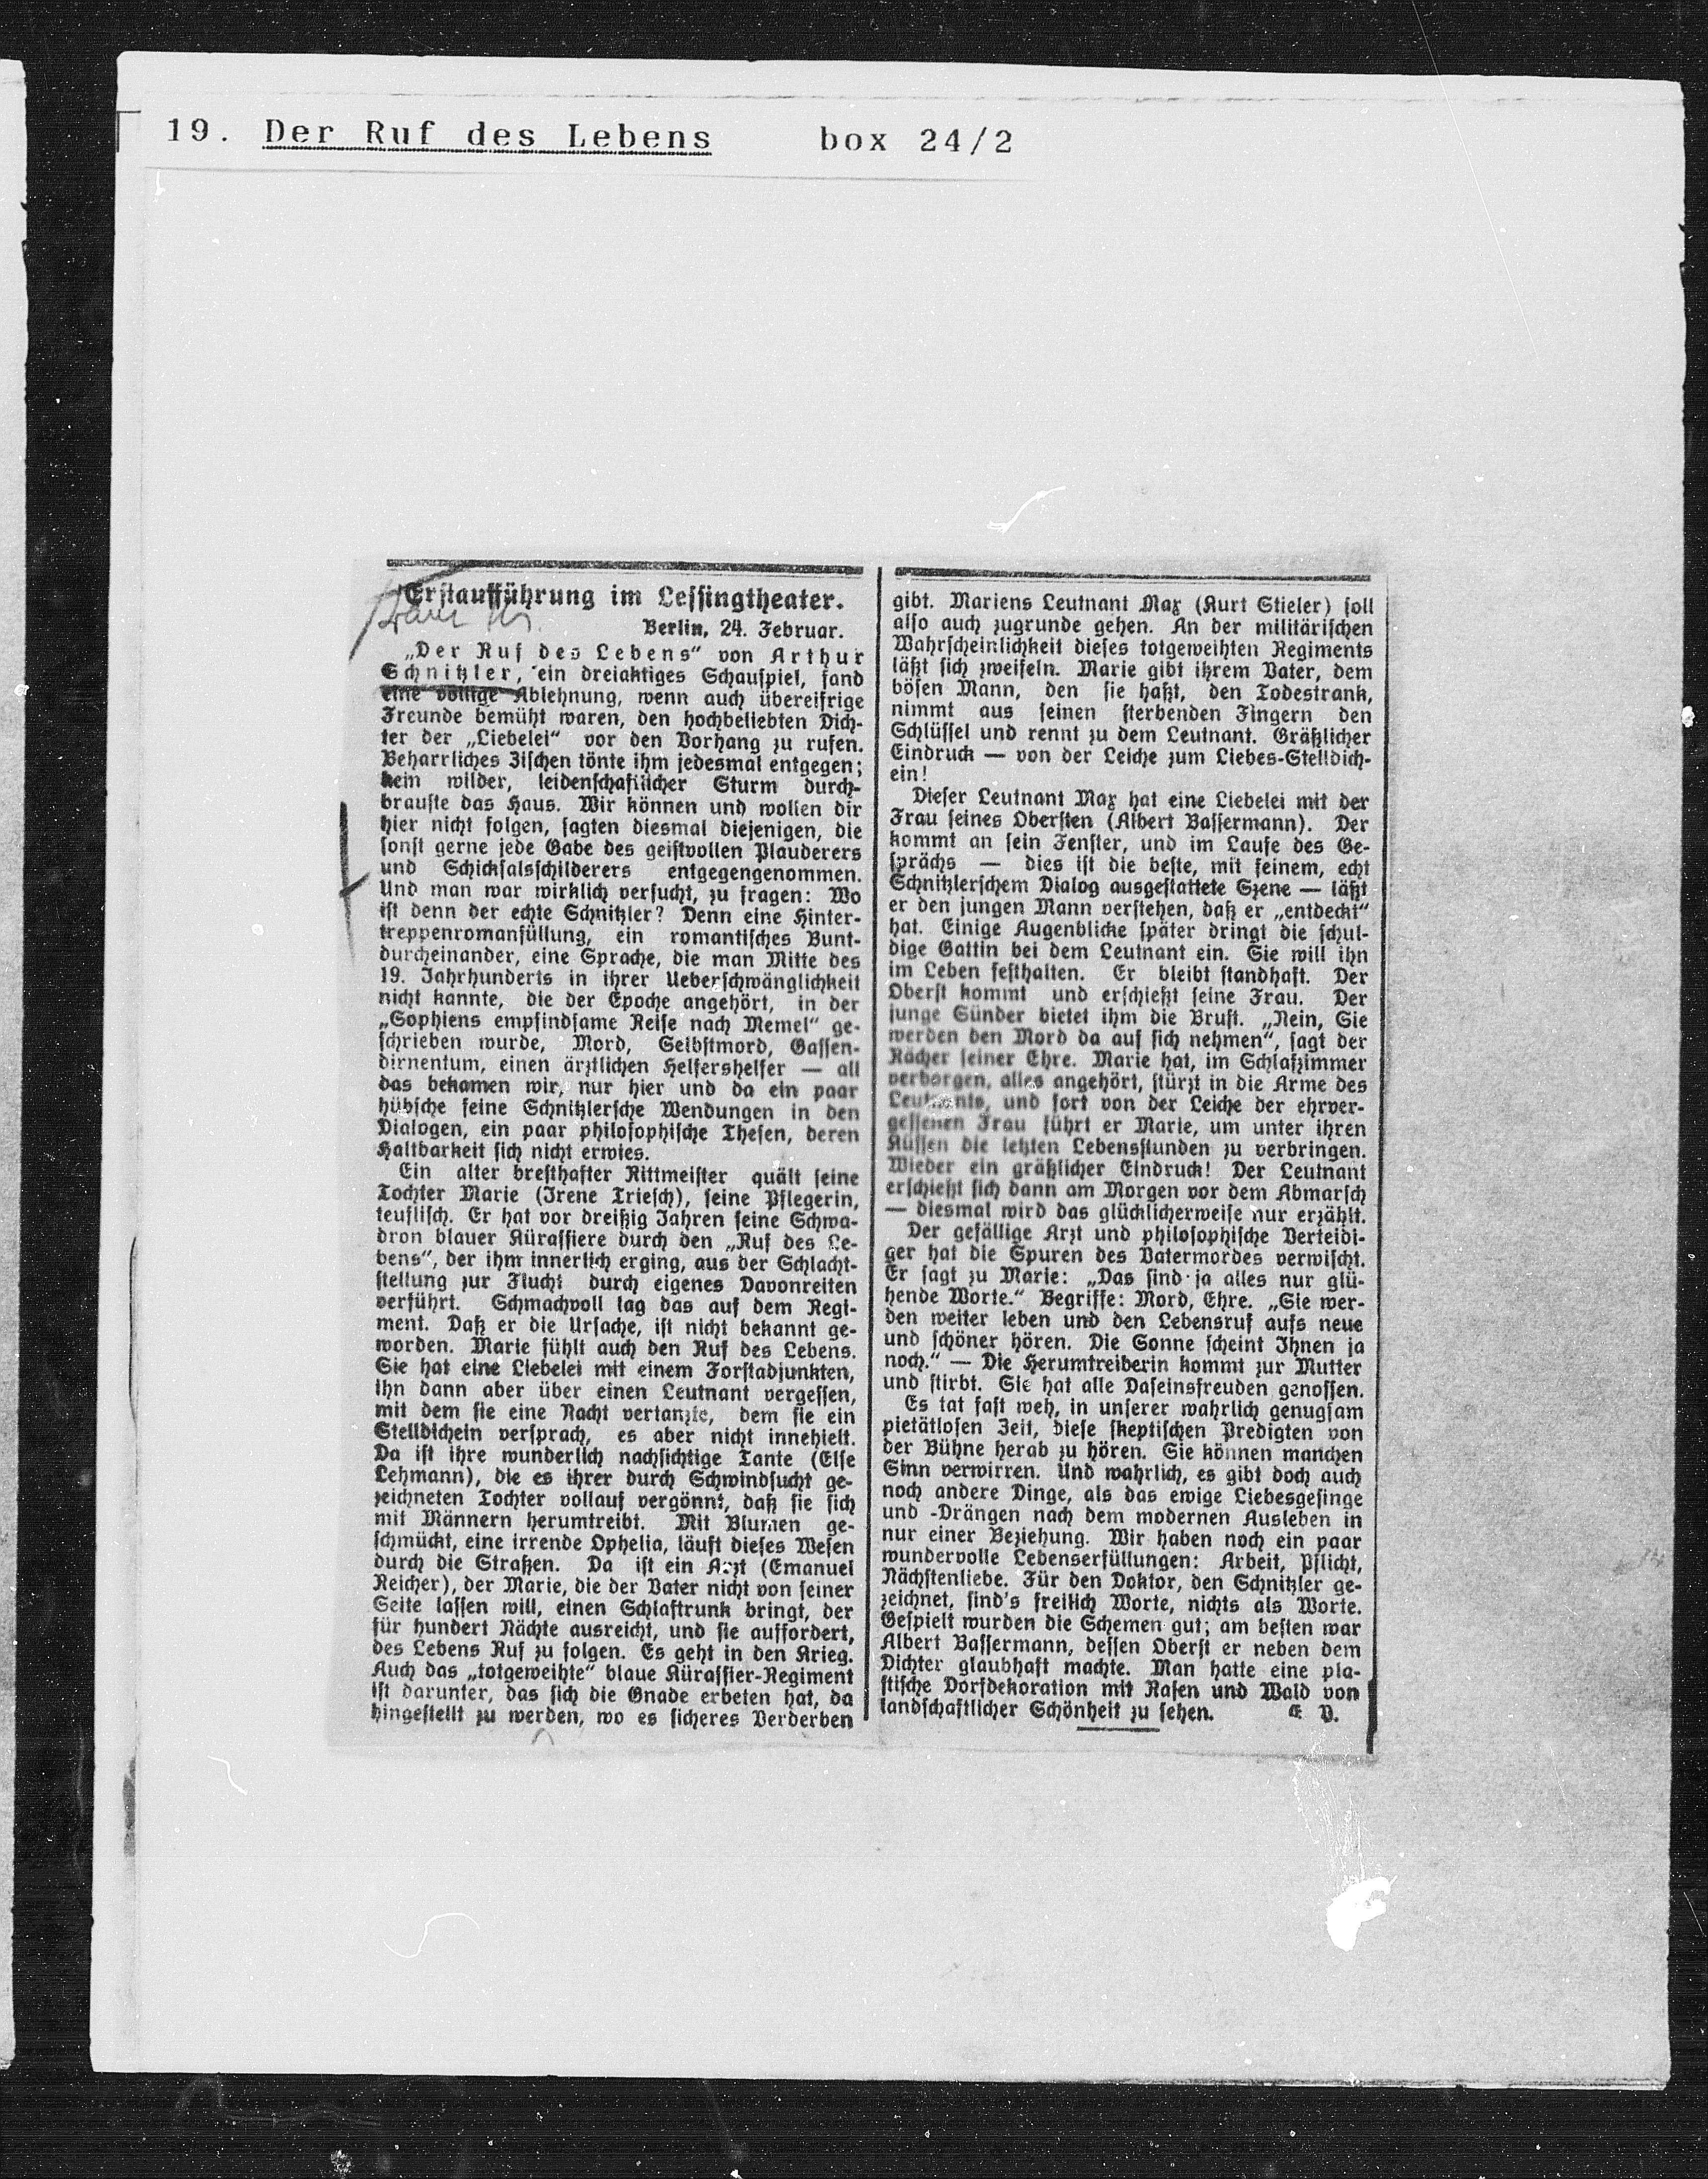 19. Der Ruf des Lebens box 24/2
Erstaufführung im Lessingtheater.
Berlin, 24. Februar.
„Der Ruf des Lebens“ von Arthur
Schnitzler, ein dreiaktiges Schauspiel, fand
eine völlige Ablehnung, wenn auch übereifrige
Freunde bemüht waren, den hochbeliebten Dich-
ter der „Liebelei“ vor den Vorhang zu rufen.
Beharrliches Zischen tönte ihm jedesmal entgegen;
kein wilder, leidenschaftlicher Sturm durch-
brauste das Haus. Wir können und wollen dir
hier nicht folgen, sagten diesmal diejenigen, die
sonst gerne jede Gabe des geistvollen Plauderers
und Schicksalsschilderers entgegengenommen.
Und man war wirklich versucht, zu fragen: Wo
ist denn der echte Schnitzler? Denn eine Hinter-
treppenromanfüllung, ein romantisches Bunt-
durcheinander, eine Sprache, die man Mitte des
19. Jahrhunderts in ihrer Ueberschwänglichkeit
nicht kannte, die der Epoche angehört, in der
„Sophiens empfindsame Reise nach Memel“ ge-
schrieben wurde, Mord, Selbstmord, Gassen-
dirnentum, einen ärztlichen Helfershelfer — all
das bekamen wir, nur hier und da ein paar
hübsche feine Schnitzlersche Wendungen in den
Dialogen, ein paar philosophische Thesen, deren
Haltbarkeit sich nicht erwies.
Ein alter bresthafter Rittmeister quält seine
Tochter Marie (Irene Triesch), seine Pflegerin,
teuflisch. Er hat vor dreißig Jahren seine Schwa-
dron blauer Kürassiere durch den „Ruf des Le-
bens“, der ihm innerlich erging, aus der Schlacht-
stellung zur Flucht durch eigenes Davonreiten
verführt. Schmachvoll lag das auf dem Regi-
ment. Daß er die Ursache, ist nicht bekannt ge-
worden. Marie fühlt auch den Ruf des Lebens.
Sie hat eine Liebelei mit einem Forstadjunkten,
ihn dann aber über einen Leutnant vergessen,
mit dem sie eine Nacht vertanzte, dem sie ein
Stelldichein versprach, es aber nicht innehielt.
Da ist ihre wunderlich nachsichtige Tante (Else
Lehmann), die es ihrer durch Schwindsucht ge-
zeichneten Tochter vollauf vergönnt, daß sie sich
mit Männern herumtreibt. Mit Blumen ge-
schmückt, eine irrende Ophelia, läuft dieses Wesen
durch die Straßen. Da ist ein Arzt (Emanuel
Reicher), der Marie, die der Vater nicht von seiner
Seite lassen will, einen Schlaftrunk bringt, der
für hundert Nächte ausreicht, und sie auffordert,
des Lebens Ruf zu folgen. Es geht in den Krieg.
Auch das „totgeweihte“ blaue Kürassier-Regiment
ist darunter, das sich die Gnade erbeten hat, da
hingestellt zu werden, wo es sicheres Verderben
gibt. Mariens Leutnant Max (Kurt Stieler) soll
also auch zugrunde gehen. An der militärischen
Wahrscheinlichkeit dieses totgeweihten Regiments
läßt sich zweifeln. Marie gibt ihrem Vater, dem
bösen Mann, den sie haßt, den Todestrank,
nimmt aus seinen sterbenden Fingern den
Schlüssel und rennt zu dem Leutnant. Gräßlicher
Eindruck — von der Leiche zum Liebes-Stelldich-
ein!
Dieser Leutnant Max hat eine Liebelei mit der
Frau seines Obersten (Albert Bassermann). Der
kommt an sein Fenster, und im Laufe des Ge-
sprächs — dies ist die beste, mit feinem, echt
Schnitzlerschem Dialog ausgestattete Szene — läßt
er den jungen Mann verstehen, daß er „entdeckt“
hat. Einige Augenblicke später dringt die schul-
dige Gattin bei dem Leutnant ein. Sie will ihn
im Leben festhalten. Er bleibt standhaft. Der
Oberst kommt und erschießt seine Frau. Der
junge Sünder bietet ihm die Brust. „Nein, Sie
werden den Mord da auf sich nehmen“, sagt der
Rächer seiner Ehre. Marie hat, im Schlafzimmer
verborgen, alles angehört, stürzt in die Arme des
Leutnants, und fort von der Leiche der ehrver-
gessenen Frau führt er Marie, um unter ihren
Küssen die letzten Lebensstunden zu verbringen.
Wieder ein gräßlicher Eindruck! Der Leutnant
erschießt sich dann am Morgen vor dem Abmarsch
— diesmal wird das glücklicherweise nur erzählt.
Der gefällige Arzt und philosophische Verteidi-
ger hat die Spuren des Vatermordes verwischt.
Er sagt zu Marie: „Das sind ja alles nur glü-
hende Worte.“ Begriffe: Mord, Ehre. „Sie wer-
den weiter leben und den Lebensruf aufs neue
und schöner hören. Die Sonne scheint Ihnen ja
noch.“ — Die Herumtreiberin kommt zur Mutter
und stirbt. Sie hat alle Daseinsfreuden genossen.
Es tat fast weh, in unserer wahrlich genugsam
pietätlosen Zeit, diese skeptischen Predigten von
der Bühne herab zu hören. Sie können manchen
Sinn verwirren. Und wahrlich, es gibt doch auch
noch andere Dinge, als das ewige Liebesgesinge
und -Drängen nach dem modernen Ausleben in
nur einer Beziehung. Wir haben noch ein paar
wundervolle Lebenserfüllungen: Arbeit, Pflicht,
Nächstenliebe. Für den Doktor, den Schnitzler ge-
zeichnet, sind's freilich Worte, nichts als Worte.
Gespielt wurden die Schemen gut; am besten war
Albert Bassermann, dessen Oberst er neben dem
Dichter glaubhaft machte. Man hatte eine pla-
stische Dorfdekoration mit Rasen und Wald von
landschaftlicher Schönheit zu sehen. E. V.